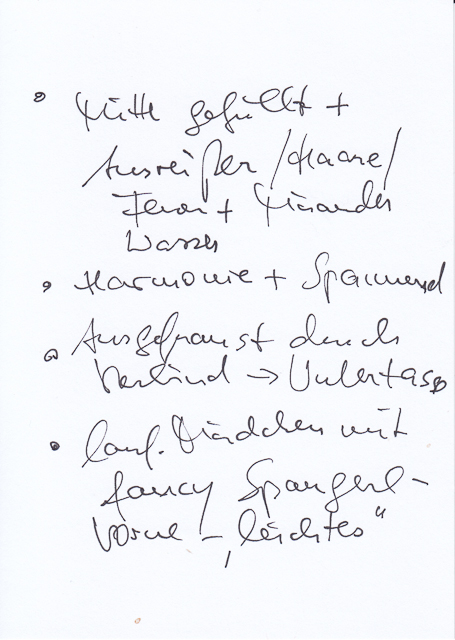 • Mitte gefüllt +
Ausreißer / Haare /
Feuer + Mäander
Wasser
• Harmonie + Spannend
• Ausgefranst durch
Verbind → Untertasse
• lauf. Mädchen mit
fancy Spangerl -
vorne - „leichtes"